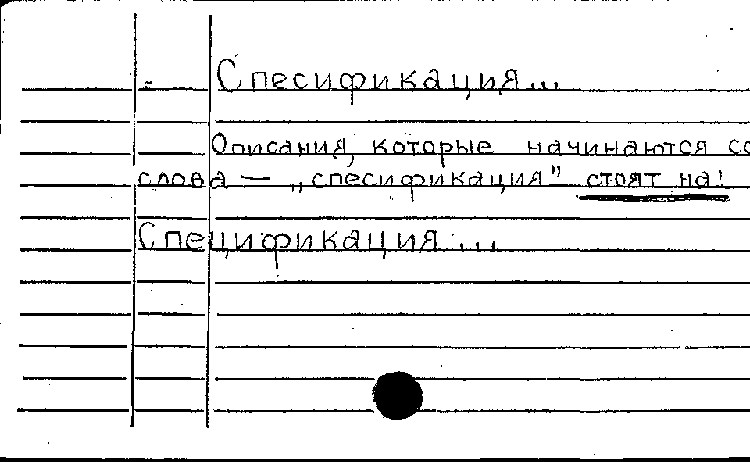 Спесификация...
Описания, которые начинаются со
слова — „спесификация" стоят на!
Спецификация...